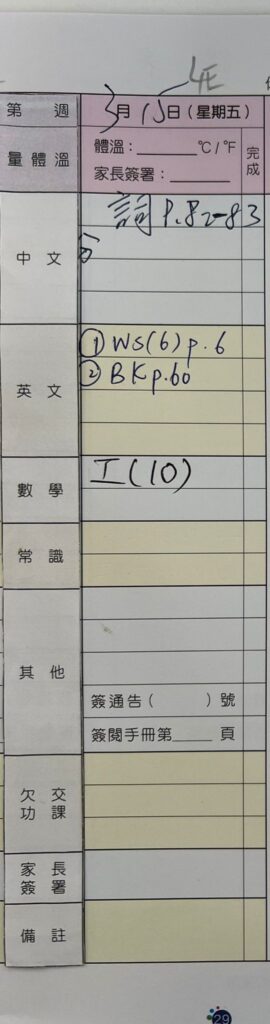 4E
第 週 3月15日(星期五)
量體溫 體溫：______℃/℉ 完成
家長簽署：______
中文 詞 P.82-83
英文 ① WS(6) p.6
② BK p.60
數學 工(10)
常識
其他
簽通告( )號
簽閱手冊第____頁
欠交功課
家長簽署
備註
29